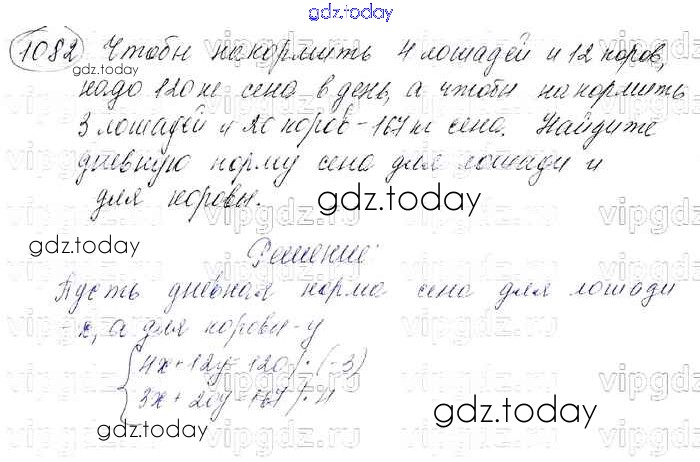 gdz.today
1082 Чтобы накормить 4 лошадей и 12 коров,
gdz.today
надо 120 кг сена в день, а чтобы накормить
3 лошадей и 20 коров - 167 кг сена. Найдите
дневную норму сена для лошади и
для коровы. gdz.today
gdz.today
Решение:
Пусть дневная норма сена для лошади
- x, а для коровы - y
4x + 12y = 120 | · (-3)
3x + 20y = 167 | · 4
gdz.today
gdz.today
vipgdz.ru